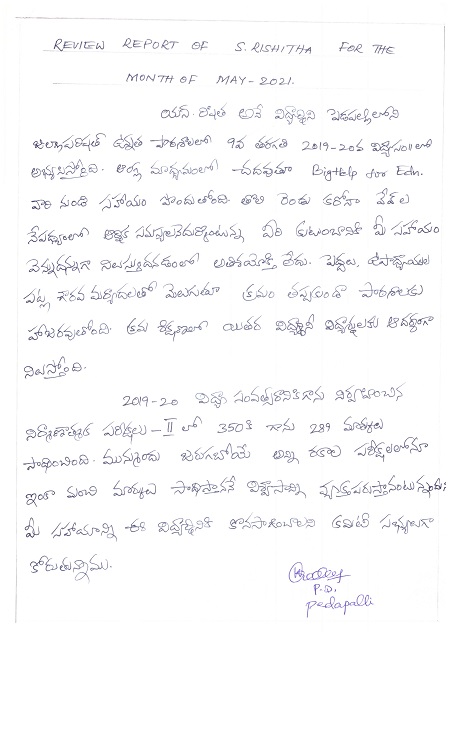 REVIEW REPORT OF S. RISHITHA FOR THE
MONTH OF MAY-2021.
యస్. రిషిత అనే విద్యార్థిని పెదపల్లిలోని
జిల్లాపరిషత్ ఉన్నత పాఠశాలలో 9వ తరగతి 2019-20వ విద్యాసం॥లో
అభ్యసిస్తోంది. ఆంగ్ల మాధ్యమంలో చదువుతూ BigHelp for Edn.
వారి నుండి సహాయం పొందుతోంది. తొలి రెండు కరోనా వేవ్ ల
నేపథ్యంలో ఆర్థిక సమస్యలనెదుర్కొంటున్న వీరి కుటుంబానికి మీ సహాయం
వెన్నుదన్నుగా నిలుస్తుందనడంలో అతిశయోక్తి లేదు. పెద్దలు, ఉపాధ్యాయుల
పట్ల గౌరవ మర్యాదలతో మెలుగుతూ క్రమం తప్పకుండా పాఠశాలకు
హాజరవుతోంది. క్రమ శిక్షణలో యితర విద్యార్థినీ విద్యార్థులకు ఆదర్శంగా
నిలుస్తోంది.
2019-20 విద్యా సంవత్సరానికిగాను నిర్వహించిన
నిర్మాణాత్మక పరీక్షలు-II లో 350కి గాను 289 మార్కులు
సాధించింది. మున్ముందు జరుగబోయే అన్ని రకాల పరీక్షలలోనూ
ఇంకా మంచి మార్కులు సాధిస్తాననే విశ్వాసాన్ని వ్యక్తపరుస్తానంటున్నది;
మీ సహాయాన్ని ఈ విద్యార్థినికి కొనసాగించాలని కమిటీ సభ్యులుగా
కోరుతున్నాము.
P.D.
pedapalli